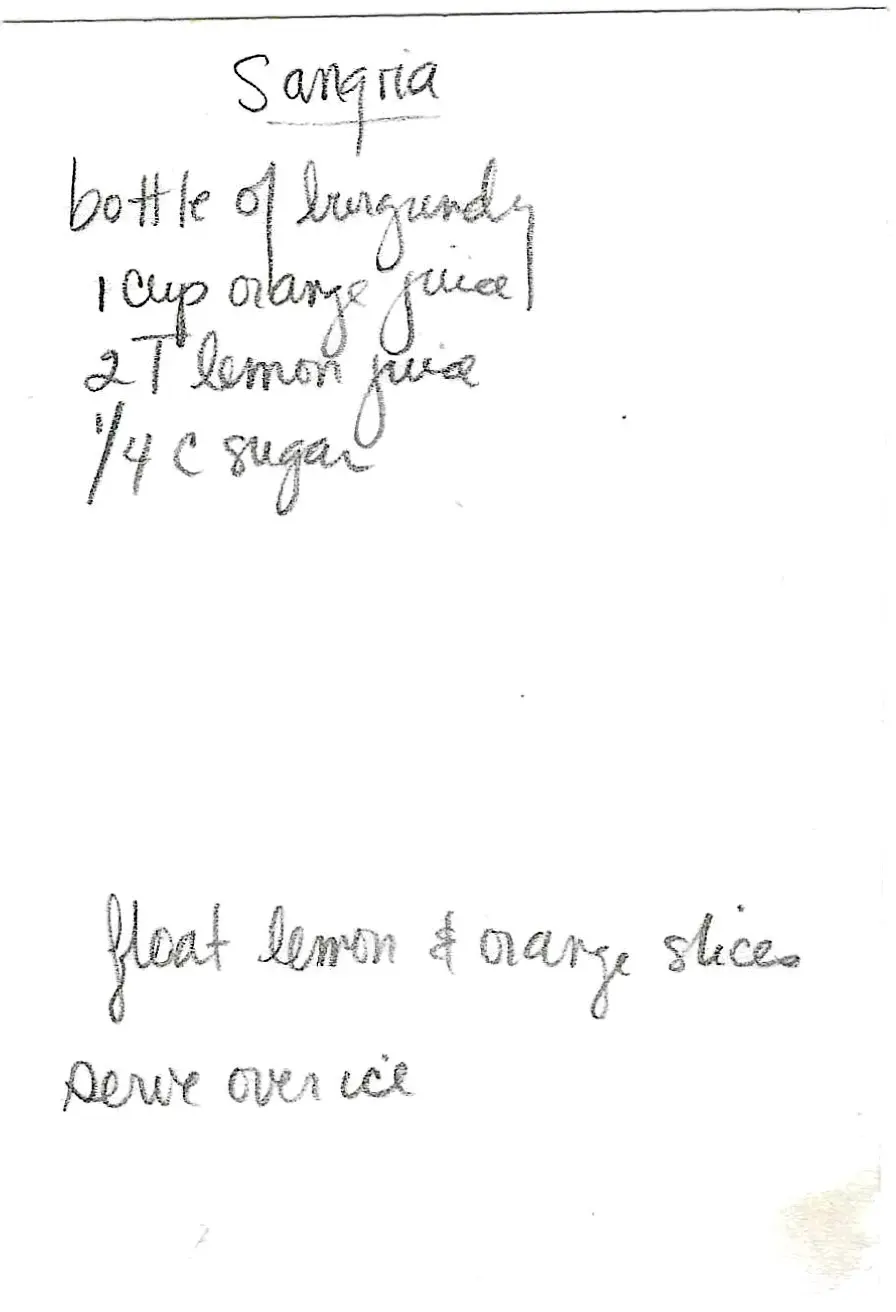 Sangria
bottle of burgundy
1 cup orange juice
2 T lemon juice
1/4 C sugar
float lemon & orange slices
serve over ice